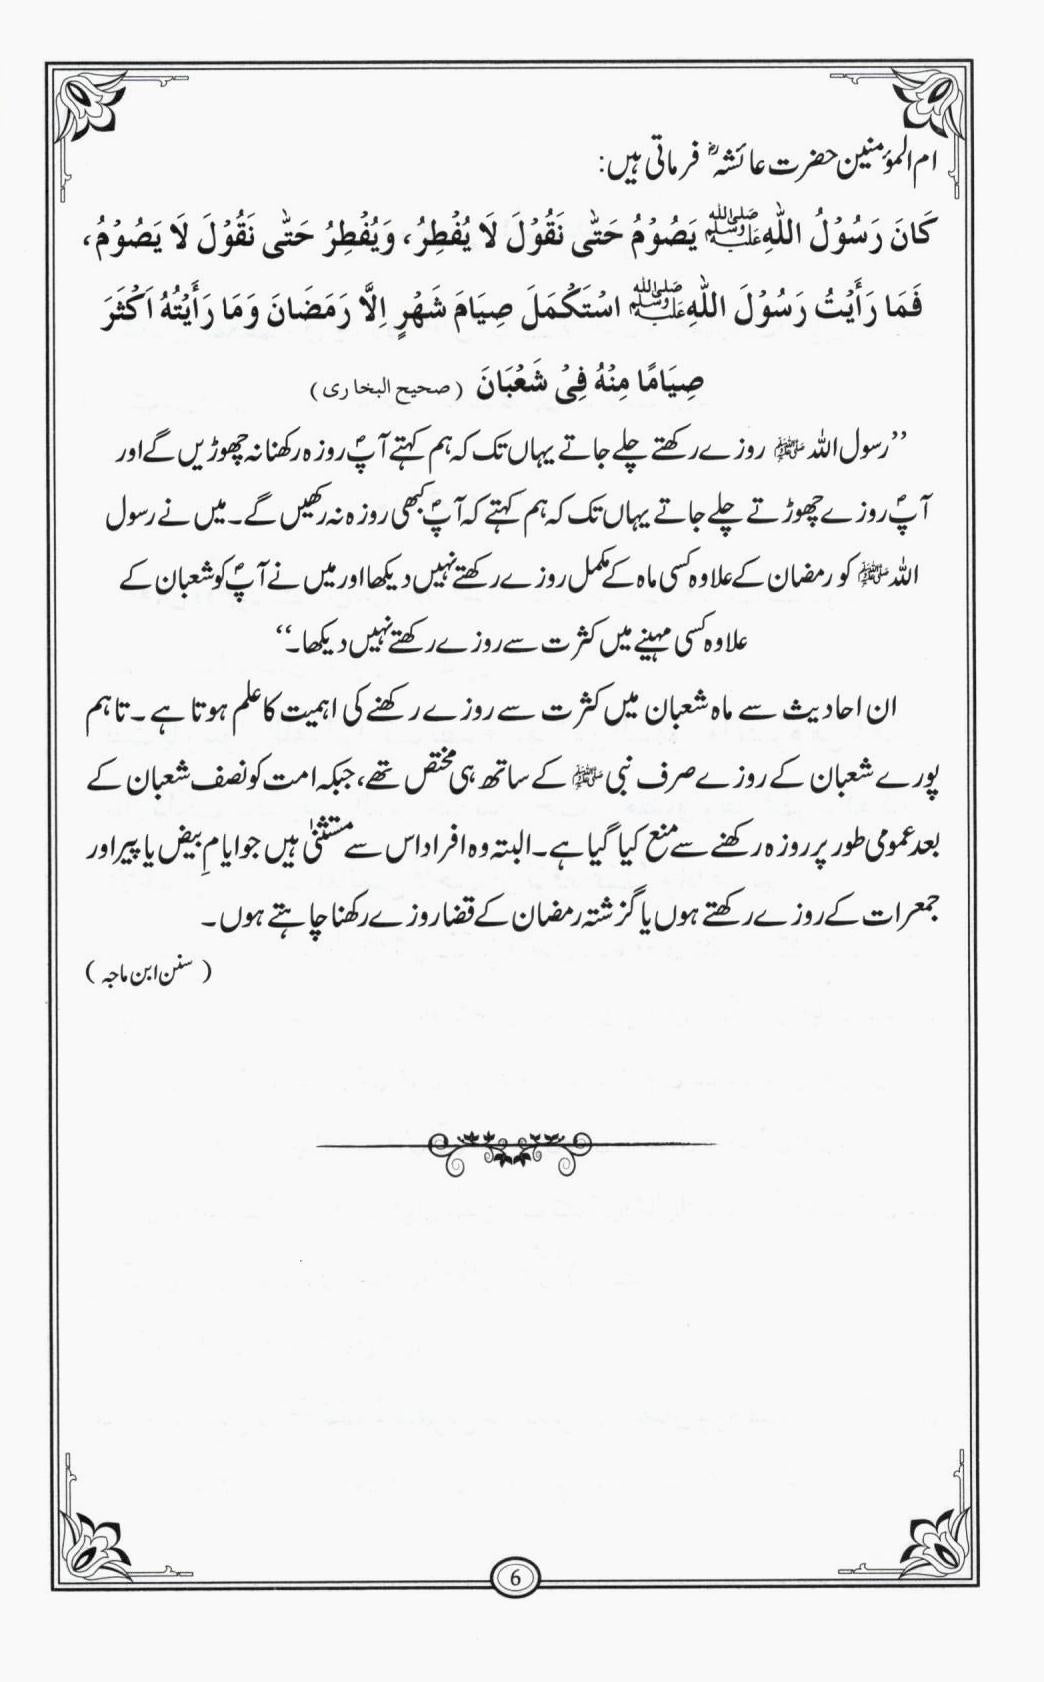 ام المؤمنین حضرت عائشہؓ فرماتی ہیں:
كَانَ رَسُوْلُ اللّٰهِ ﷺ يَصُوْمُ حَتّٰى نَقُوْلَ لَا يُفْطِرُ، وَيُفْطِرُ حَتّٰى نَقُوْلَ لَا يَصُوْمُ،
فَمَا رَأَيْتُ رَسُوْلَ اللّٰهِ ﷺ اسْتَكْمَلَ صِيَامَ شَهْرٍ اِلَّا رَمَضَانَ وَمَا رَأَيْتُهُ اَكْثَرَ
صِيَامًا مِنْهُ فِىْ شَعْبَانَ (صحیح البخاری)
’’رسول اللہ ﷺ روزے رکھتے چلے جاتے یہاں تک کہ ہم کہتے آپؐ روزہ رکھنا نہ چھوڑیں گے اور
آپؐ روزے چھوڑتے چلے جاتے یہاں تک کہ ہم کہتے کہ آپؐ کبھی روزہ نہ رکھیں گے۔ میں نے رسول
اللہ ﷺ کو رمضان کے علاوہ کسی ماہ کے مکمل روزے رکھتے نہیں دیکھا اور میں نے آپؐ کو شعبان کے
علاوہ کسی مہینے میں کثرت سے روزے رکھتے نہیں دیکھا۔‘‘
ان احادیث سے ماہ شعبان میں کثرت سے روزے رکھنے کی اہمیت کا علم ہوتا ہے۔ تاہم
پورے شعبان کے روزے صرف نبی ﷺ کے ساتھ ہی مختص تھے، جبکہ امت کو نصف شعبان کے
بعد عمومی طور پر روزہ رکھنے سے منع کیا گیا ہے۔ البتہ وہ افراد اس سے مستثنیٰ ہیں جو ایامِ بیض یا پیر اور
جمعرات کے روزے رکھتے ہوں یا گزشتہ رمضان کے قضا روزے رکھنا چاہتے ہوں۔
(سنن ابن ماجہ)
6